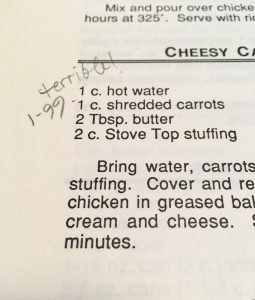 Mix and pour over chicke
hours at 325°. Serve with ri
CHEESY CA
terrible!
1-99
1 c. hot water
1 c. shredded carrots
2 Tbsp. butter
2 c. Stove Top stuffing
Bring water, carrots
stuffing. Cover and re
chicken in greased bal
cream and cheese. S
minutes.